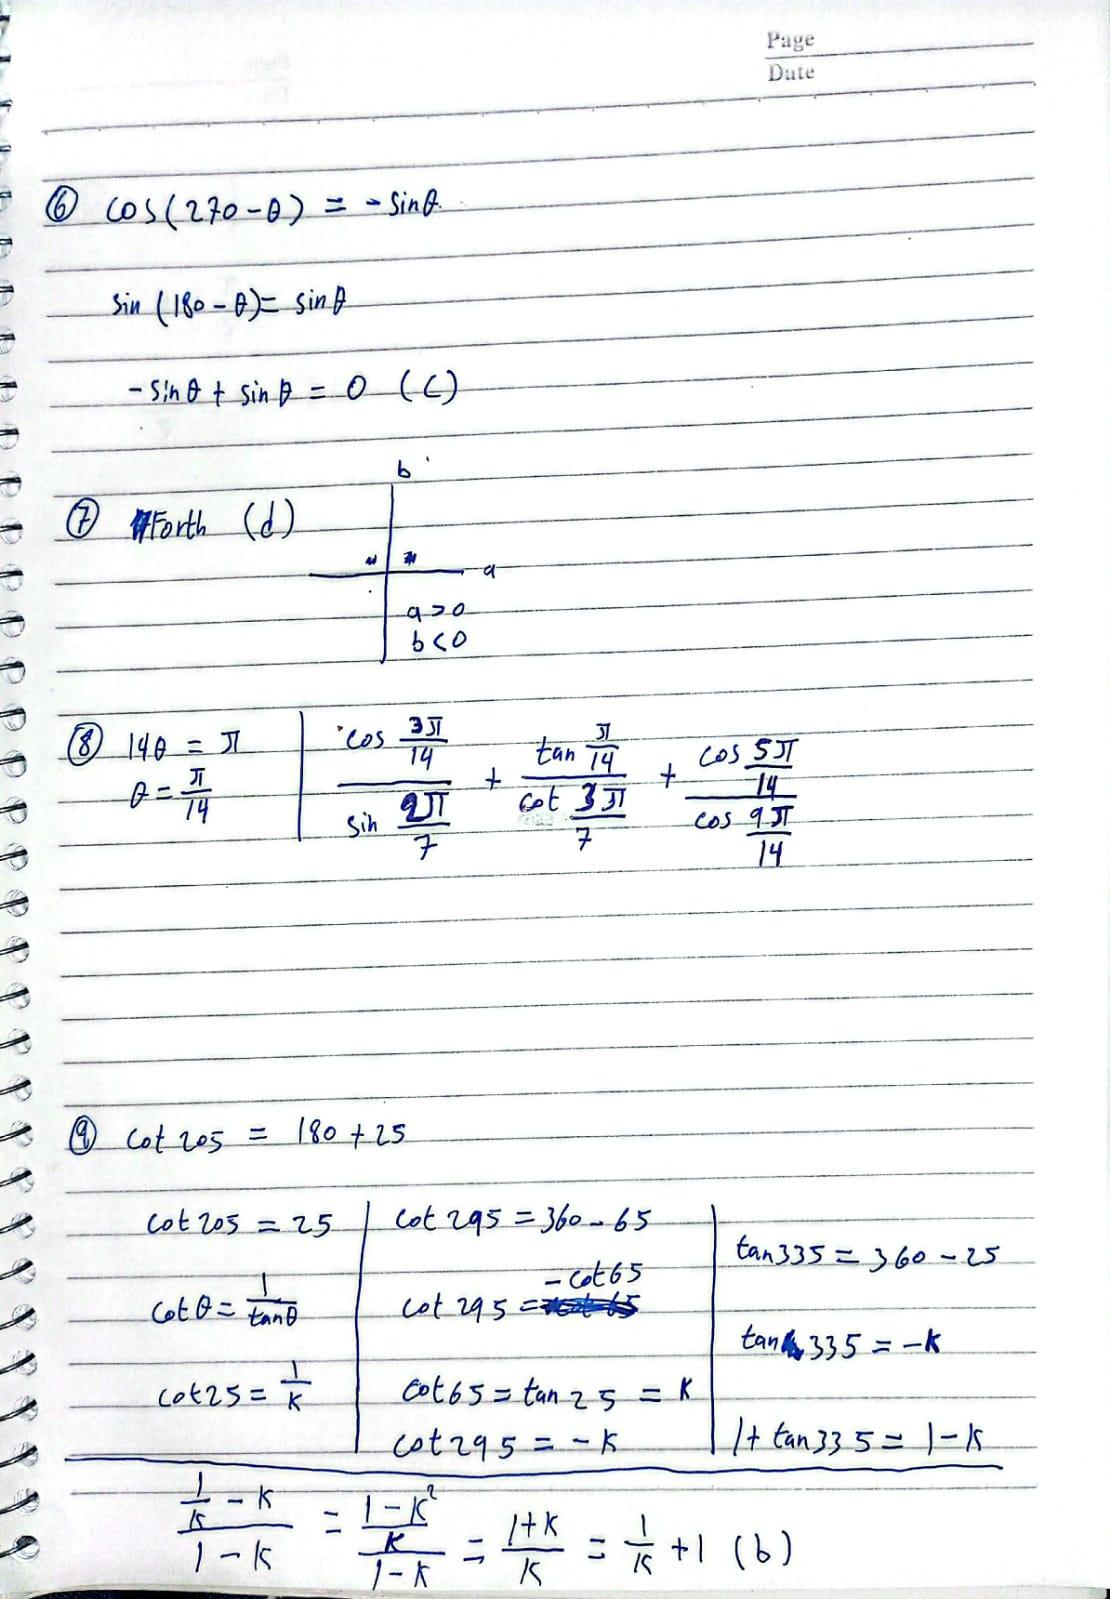 Page
Date
⑥ cos(270-θ) = - sinθ
sin (180-θ)= sinθ
- sinθ + sinθ = 0 (c)
b
⑦ Forth (d)
a
a>0
b<0
⑧ 14θ = π
θ = π/14
cos 3π/14 / sin 2π/7 + tan π/14 / cot 3π/7 + cos 5π/14 / cos 9π/14
⑨ cot 205 = 180 + 25
cot 205 = 25
cotθ = 1/tanθ
cot25 = 1/K
cot 295 = 360 - 65
cot 295 = -cot65
cot65 = tan 25 = K
cot 295 = -K
tan335 = 360 - 25
tan 335 = -K
1+ tan 335 = 1-K
(1/K - K)/(1 - K) = ((1-K²)/K)/(1-K) = (1+K)/K = 1/K +1 (b)